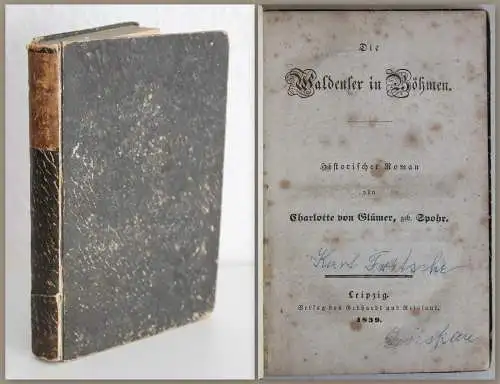 Die
Waldenser in Böhmen.
Historischer Roman
von
Charlotte von Glümer, geb. Spohr.
Karl
Leipzig.
Verlag von Gebhardt und Reisland.
1839.